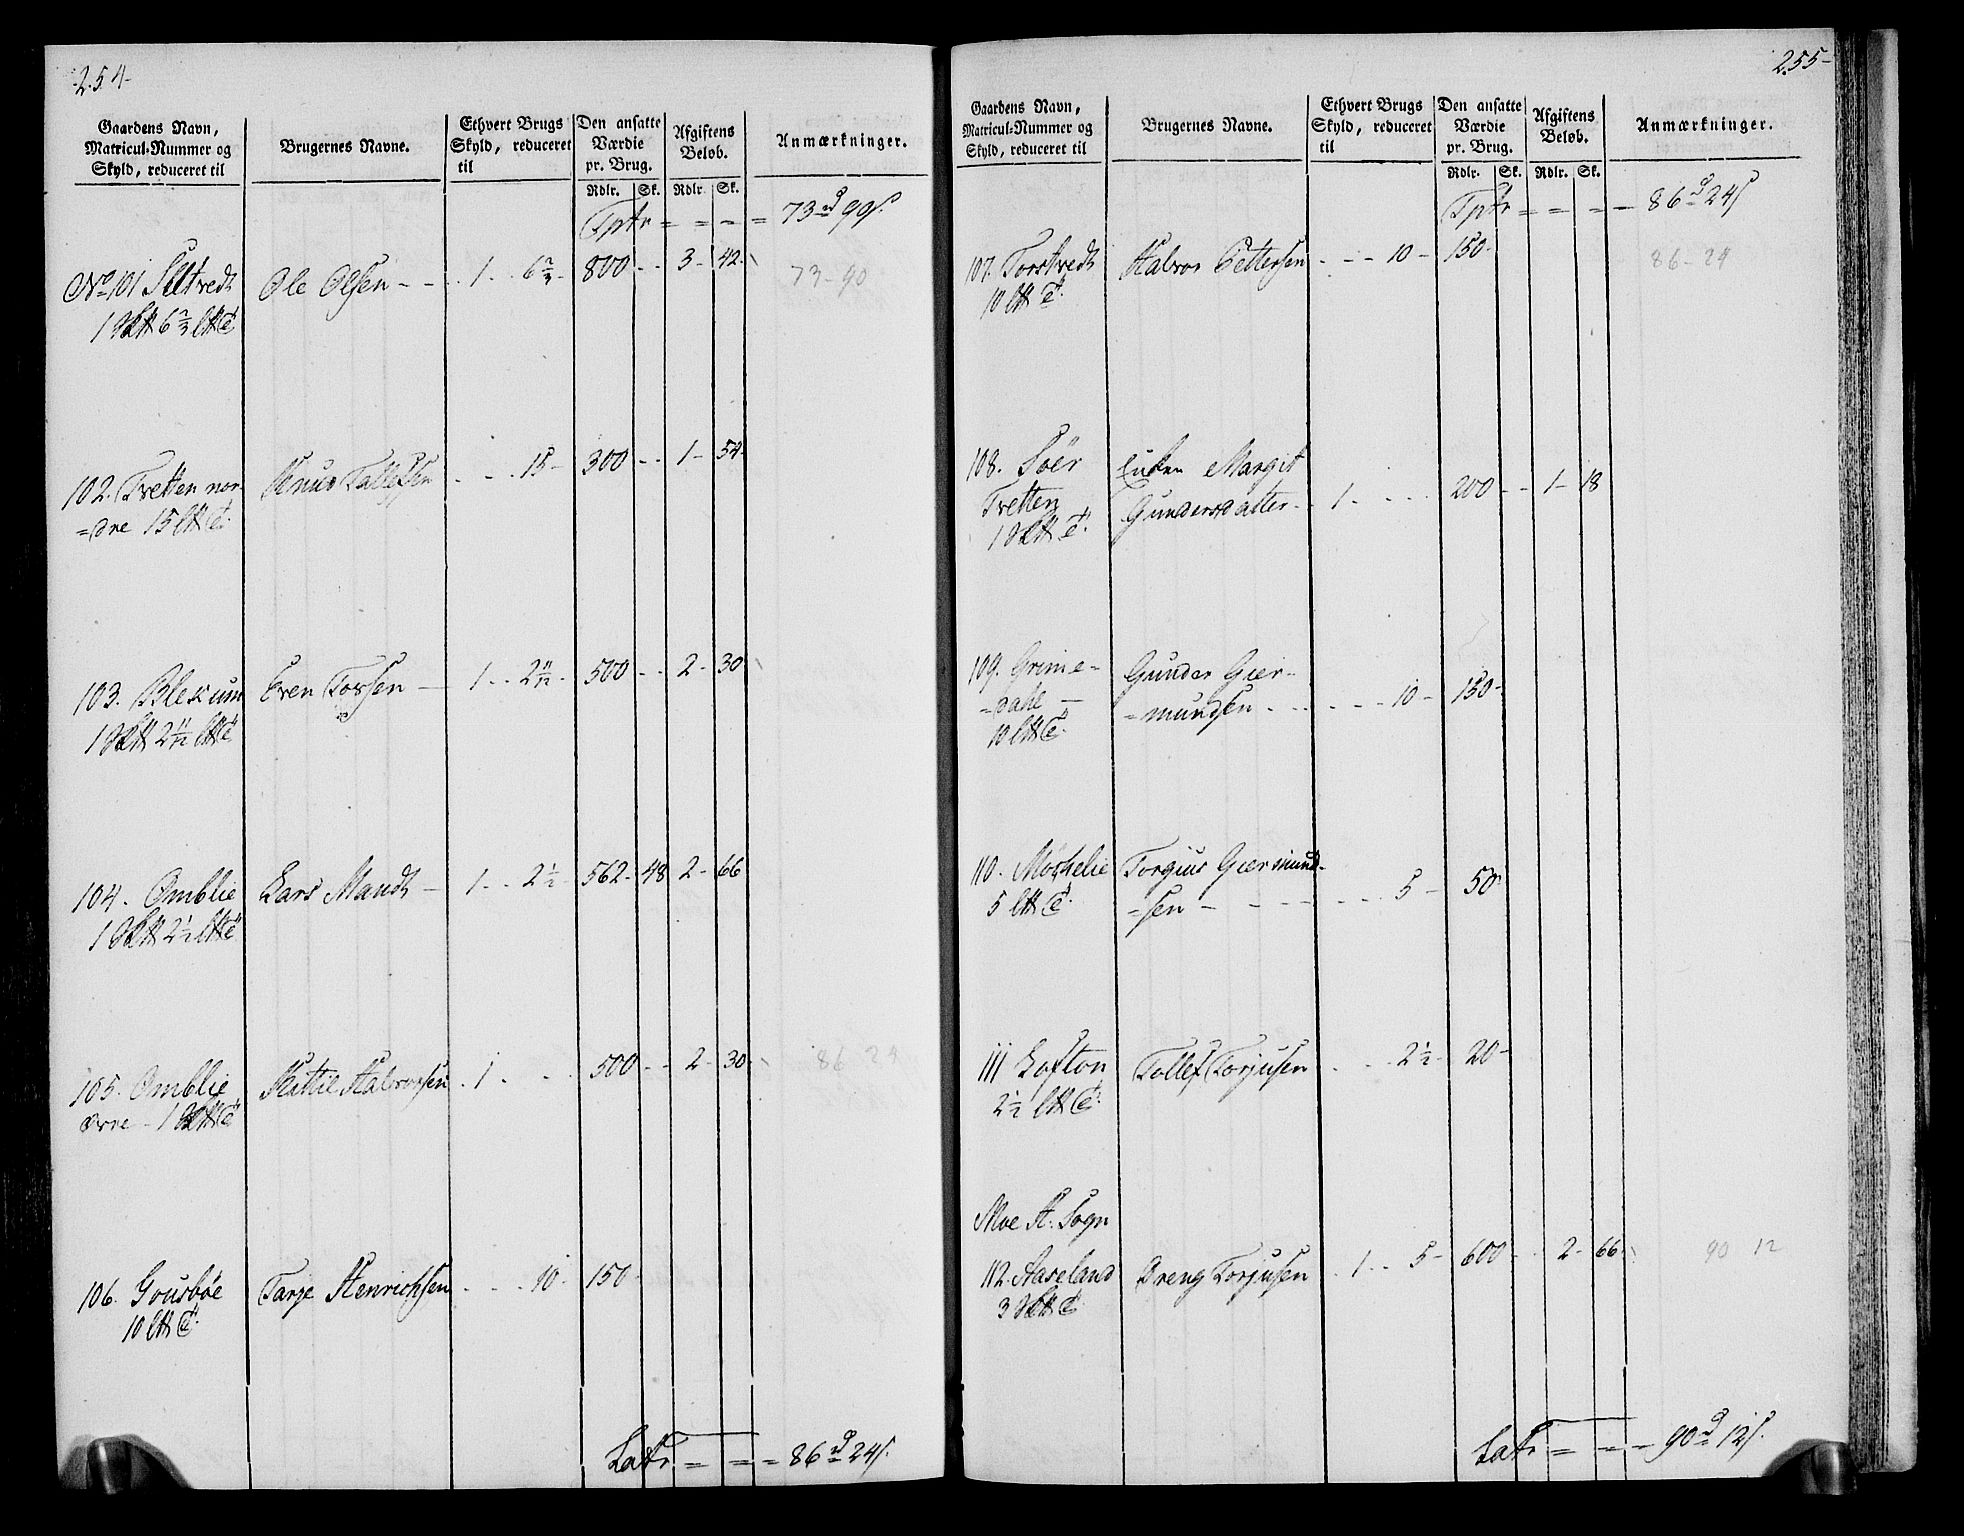 254
Gaardens Navn, Matricul-Nummer og Skyld, reduceret til
Brugernes Navne.
Ethvert Brugs Skyld, reduceret til
Den ansatte Værdie pr. Brug.
Afgiftens Beløb.
Anmærkninger.
Rdlr. Sk. Rdlr. Sk.
Tptr = = = = 73 rd 90 s.
No 101 Seltvedt Ole Olsen - - 1 - 6 2/3 - 800 - - 3 - 42 73 - 90
1 6 2/3
102. Tvetten nor- Knud Tallefsen - - 15 - 300 - - 1 - 54
=dre 15
103. Blekum Even Torsen - 1 - 2 11/12 - 500 - - 2 - 30
1 2 11/12
104. Omblie Lars Mandt - 1 - 2 1/2 - 562 - 48 2 - 66
1 2 1/2
105. Omblie Kittil Halvorsen 1 - - 500 - - 2 - 30 86 24
øvre - 1
106. Gousbøe Tarje Henrichsen - - 10 - 150 -
10
Latr = = = 86 rd 24 s.
255
Gaardens Navn, Matricul-Nummer og Skyld, reduceret til
Brugernes Navne.
Ethvert Brugs Skyld, reduceret til
Den ansatte Værdie pr. Brug.
Afgiftens Beløb.
Anmærkninger.
Rdlr. Sk. Rdlr. Sk.
Tptr = = = = 86 rd 24 s
107. Torstvedt Halvor Pettersen - - - 10 - 150 - 86 - 24
10
108. Søer Enken Margit
Tvetten Gundersdatter - 1 - - - 200 - - 1 - 18
1
109. Grime- Gunder Gier-
=dahl =mundsen - - - 10 - 150 -
10
110. Moshelie Torgius Giermund-
5 =sen - - - - 5 - 50
111 Lofton Tollef Torjusen - - 2 1/2 - 20 -
2 1/2
Moe A: Sogn
112. Aaseland Dreng Torjusen - 1 - 5 - 600 - 2 - 66 90 12
3
Latr = = = 90 rd 12 s.